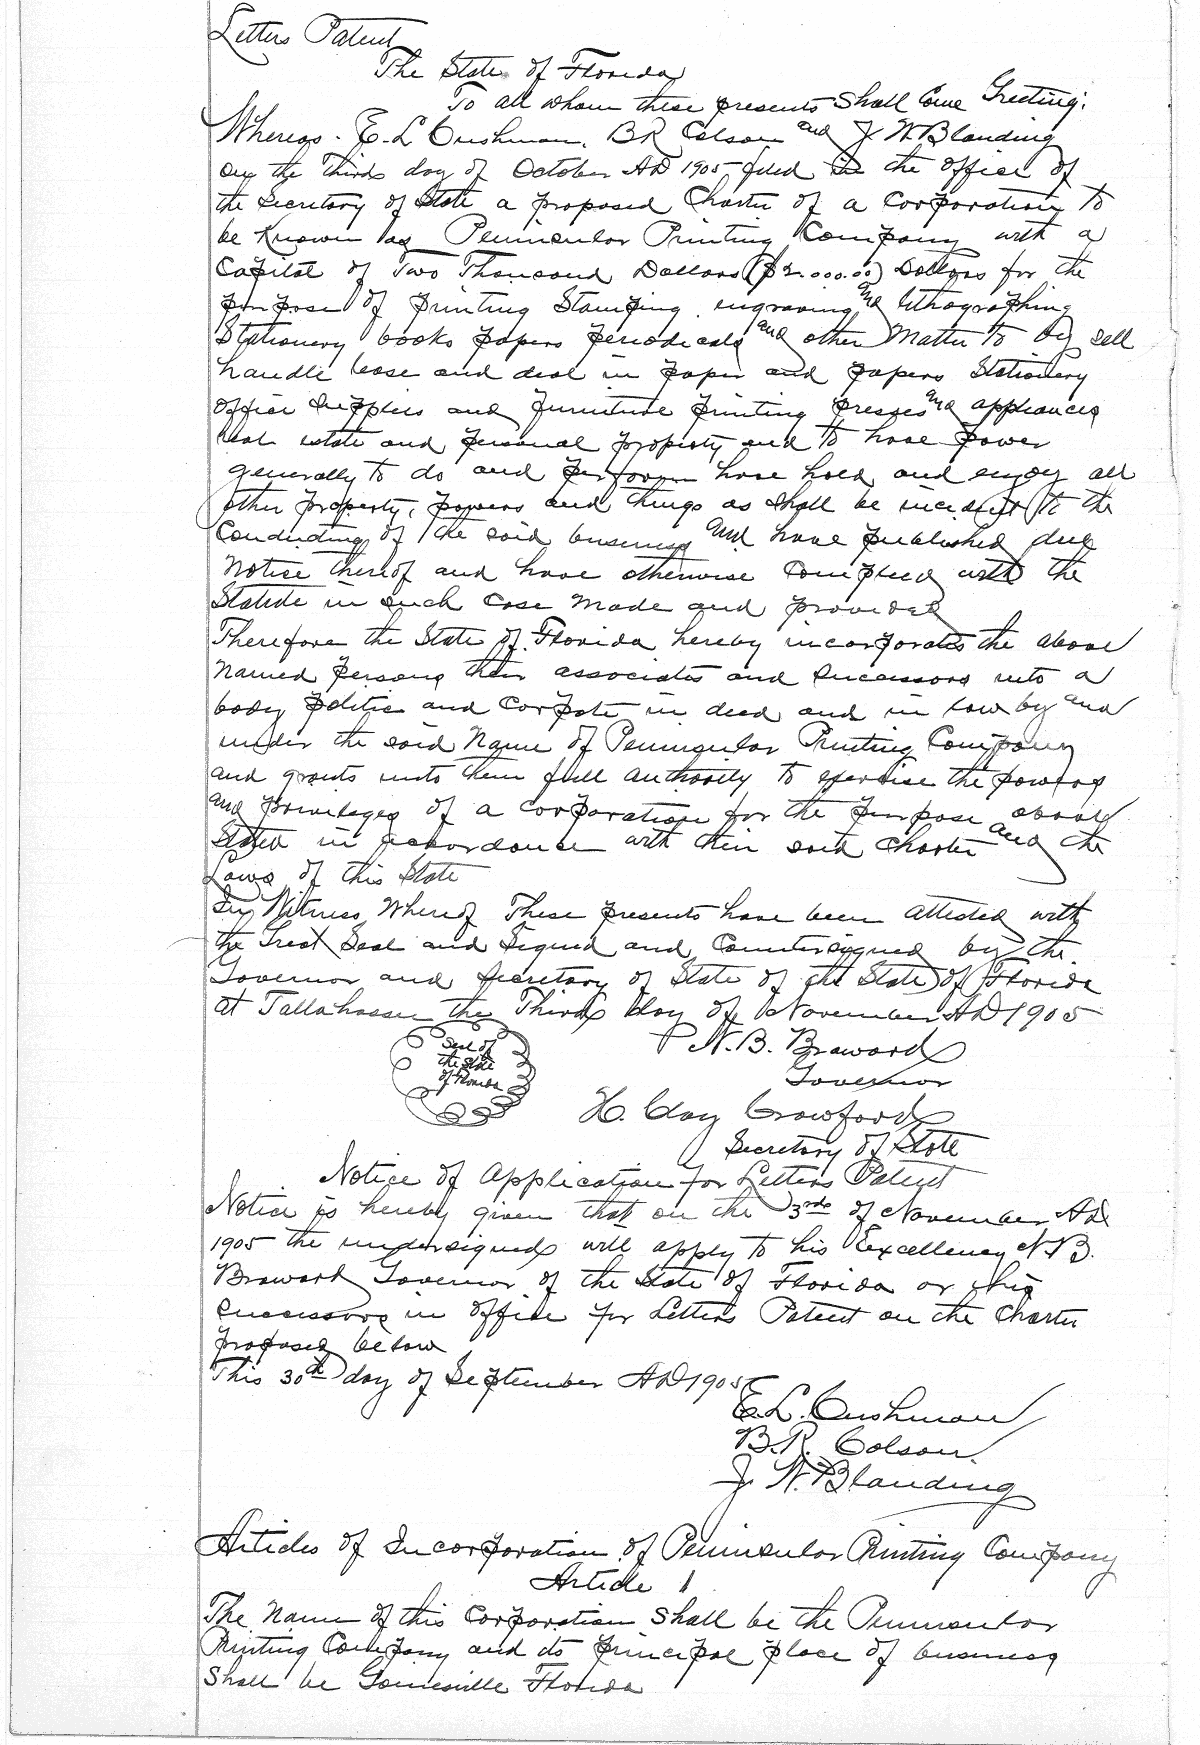 Letters Patent
The State of Florida
To all whom these presents Shall Come Greeting:
Whereas. E. L Cushman. B R Colson and J. W. Blanding
on the Third day of October AD 1905 filed in the office of
the Secretary of State a proposed Charter of a Corporation to
be Known as Peninsular Printing Company with a
Capital of Two Thousand Dollars ($2.000.00) Dollars for the
purpose of printing Stamping engraving and lithographing
Stationery books papers periodicals and other Matter to buy sell
handle lease and deal in paper and papers Stationery
office Supplies and furniture printing presses and appliances
real estate and personal property and to have power
generally to do and perform have hold and enjoy all
other property, powers and things as shall be incident to the
Conducting of the said business and have published due
Notice thereof and have otherwise Complied with the
Statute in such case made and provided
Therefore the State of Florida hereby incorporates the above
named persons their associates and Successors into a
body politic and Corpate in deed and in law by and
under the said Name of Peninsular Printing Company
and grants unto them full authority to exercise the powers
and privileges of a corporation for the purpose above
stated in accordance with their said Charter and the
Laws of this State
In Witness Whereof These presents have been attested with
the Great Seal and Signed and Countersigned by the
Governor and Secretary of State of the State of Florida
at Tallahassee the Third day of November AD 1905
N. B. Broward
Governor
Seal of
the State
of Florida
H. Clay Crawford
Secretary of State
Notice of Application for Letters Patent
Notice is hereby given that on the 3rd of November AD
1905 the undersigned will apply to his Excellency N. B.
Broward Governor of the State of Florida or his
Successors in office for Letters Patent on the Charter
proposed below
This 30th day of September AD 1905
E. L. Cushman
B. R. Colson.
J. W. Blanding
Articles of Incorporation of Peninsular Printing Company
Article 1
The Name of this Corporation Shall be the Peninsular
Printing Company and its principal place of business
Shall be Gainesville Florida